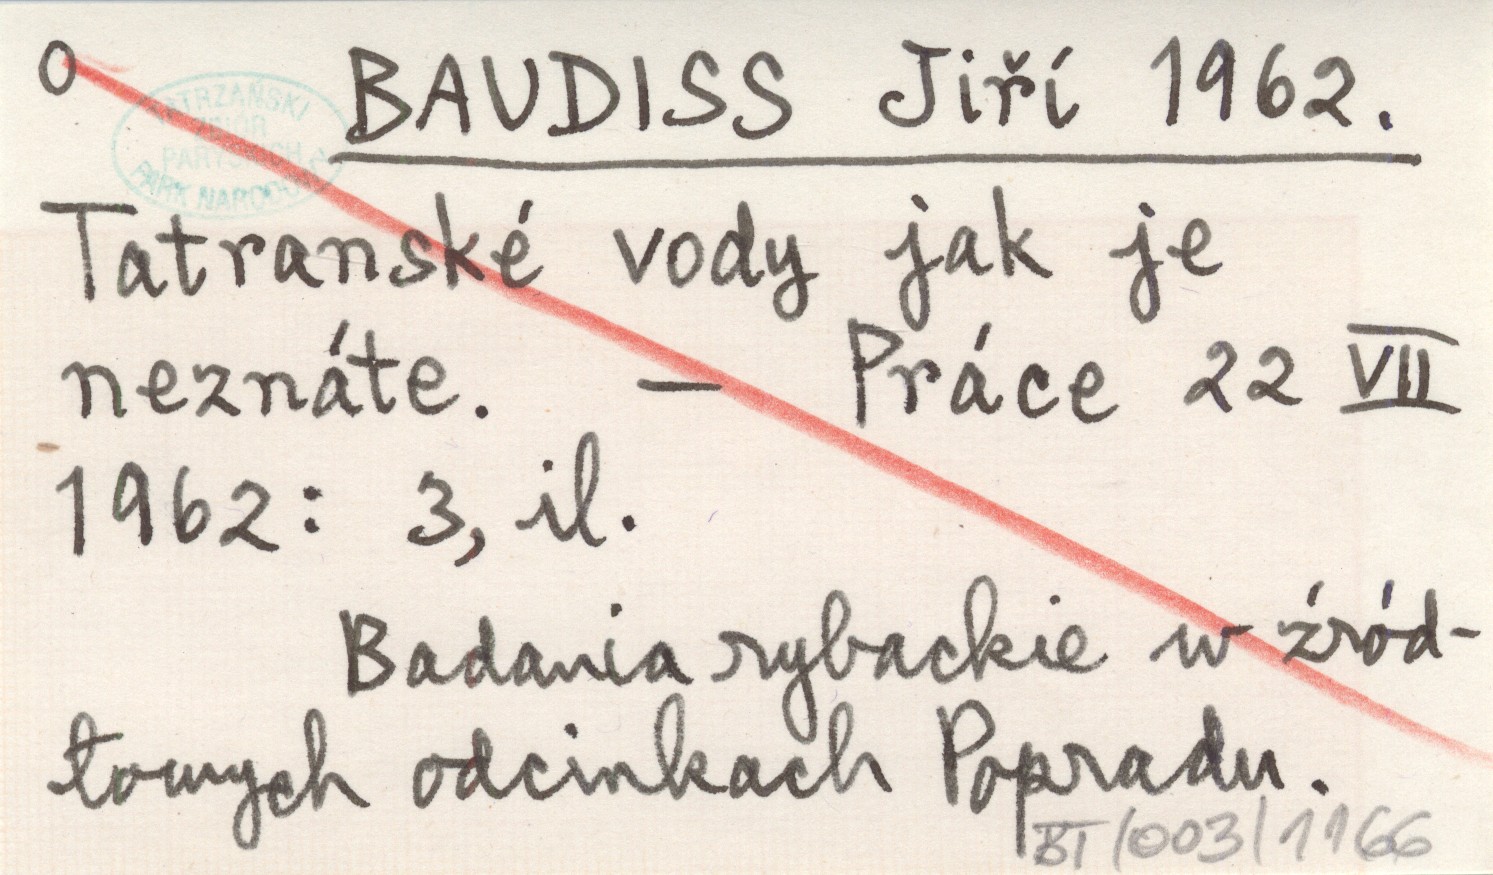 O BAUDISS Jiří 1962.
TATRZAŃSKI
ZBIÓR
PARYSKICH
PARK NARODOWY
Tatranské vody jak je
neznáte. — Práce 22 VII
1962: 3, il.
Badania rybackie w źród-
łowych odcinkach Popradu.
BT/003/1166